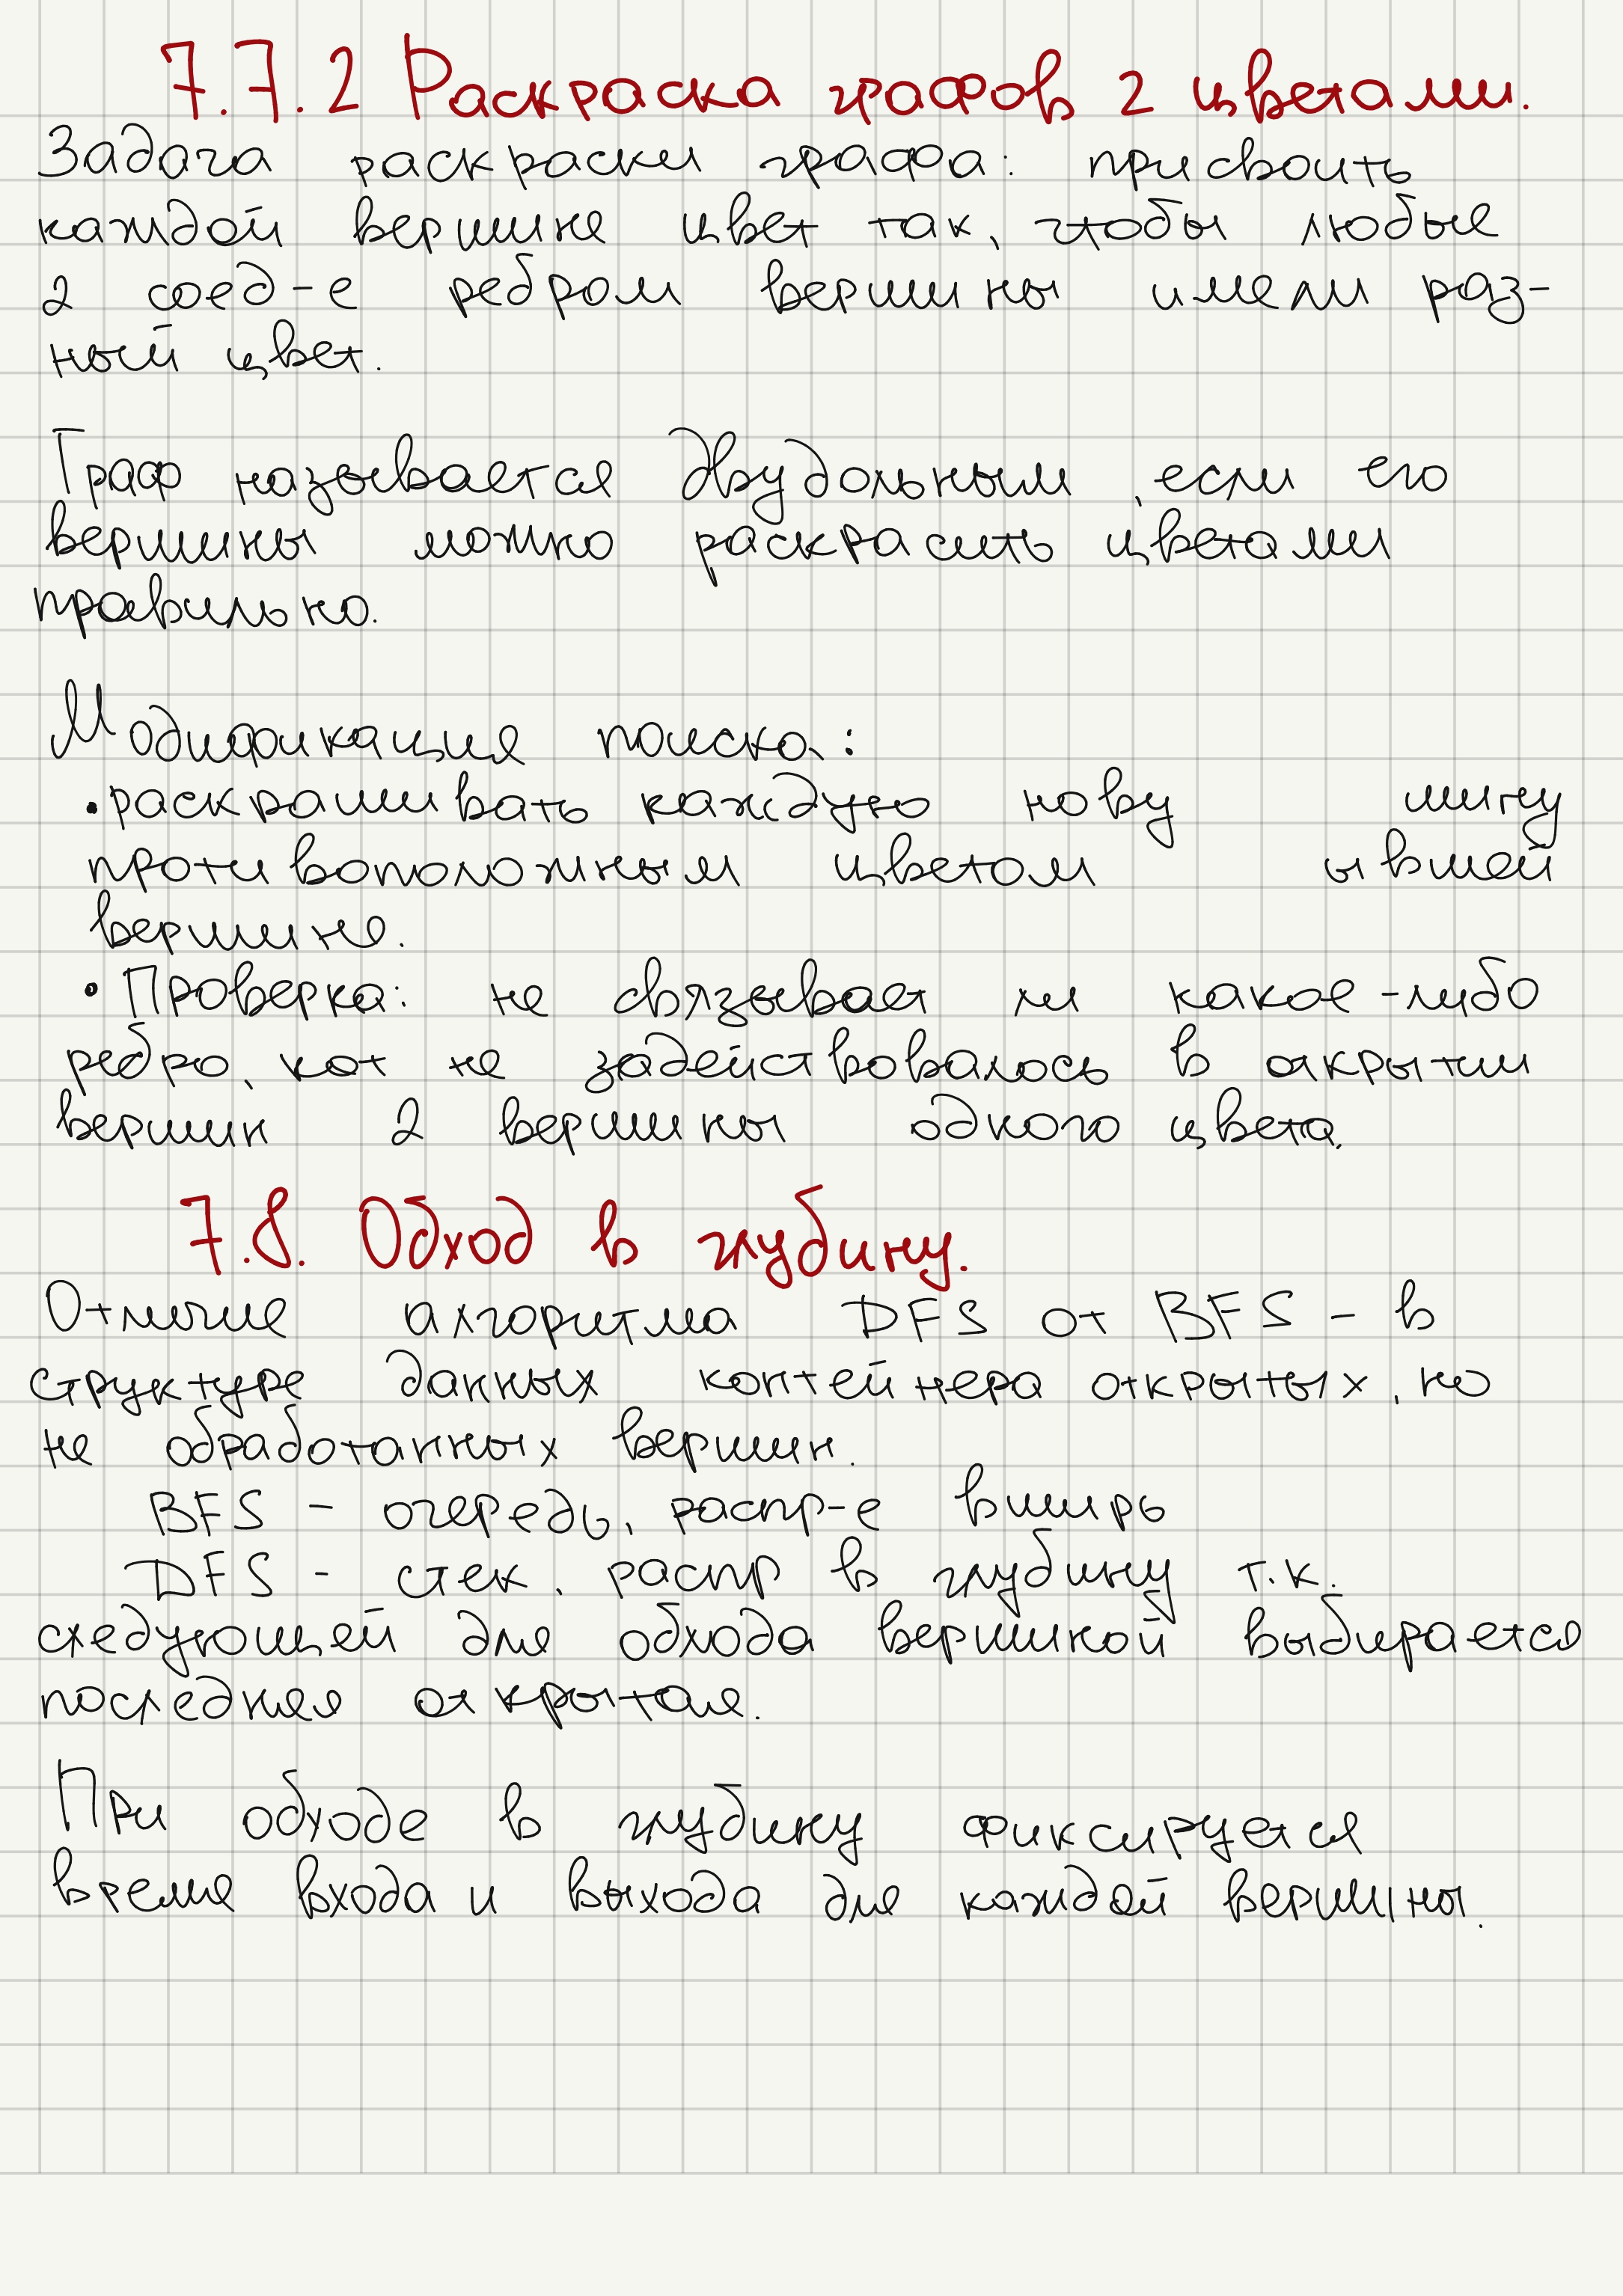 7.7.2 Раскраска графов 2 цветами.
Задача раскраски графа: присвоить
каждой вершине цвет так, чтобы любые
2 соед-е ребром вершины имели раз-
ный цвет.
Граф называется двудольным, если его
вершины можно раскрасить цветами
правильно.
Модификация поиска:
• раскрашивать каждую нову шину
противоположным цветом ывшей
вершине.
• Проверка: не связывает ли какое-либо
ребро, кот не задействовалось в открытии
вершин 2 вершины одного цвета.
7.8. Обход в глубину.
Отличие алгоритма DFS от BFS - в
структуре данных контейнера открытых, но
не обработанных вершин.
BFS - очередь, распр-е вширь
DFS - стек, распр в глубину т.к.
следующей для обхода вершиной выбирается
последняя открытая.
При обходе в глубину фиксируется
время входа и выхода для каждой вершины.